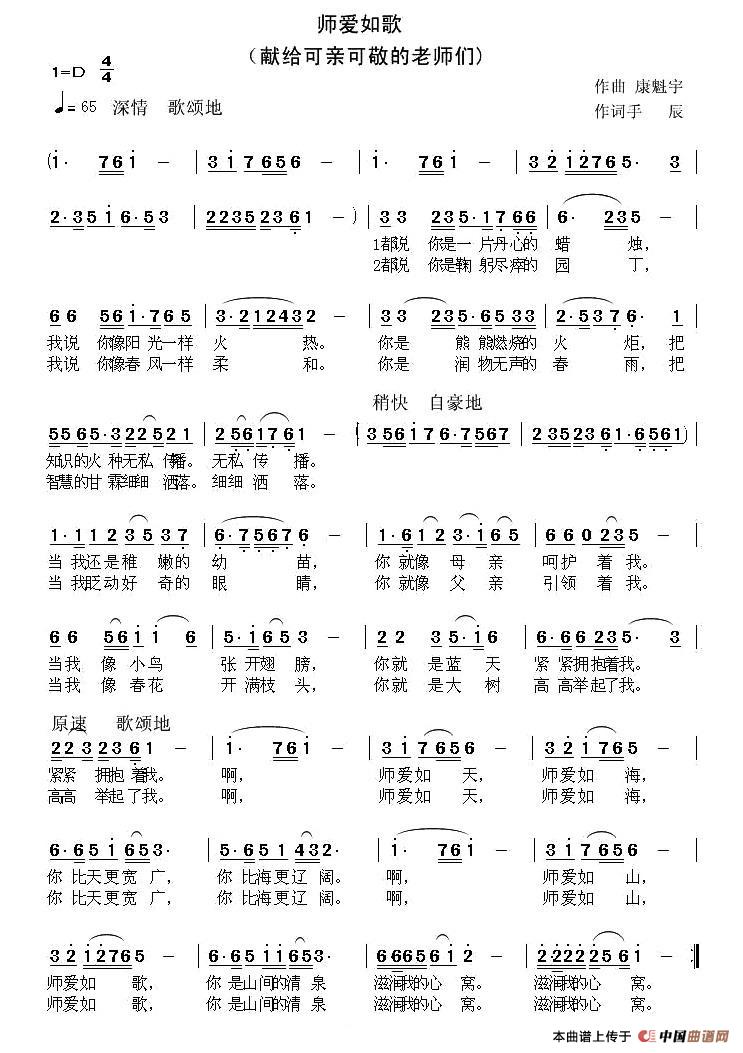 师爱如歌
（献给可亲可敬的老师们）
1=D 4/4
作曲 康魁宇
♩= 65 深情 歌颂地
作词手 辰
(1· 761 - | 31 7656 - | 1· 761 - | 32 12765· 3 |
2·351 6·53 | 2235236 1 - ) | 33 235·1766 | 6· 235 - |
1都说 你是一 片丹心的 蜡 烛，
2都说 你是鞠 躬尽瘁的 园 丁，
66 561·765 | 3·212432 - | 33 235·6535 | 2·5376· 1 |
我说 你像阳 光一样 火 热。 你是 熊 熊燃烧的 火 炬，把
我说 你像春 风一样 柔 和。 你是 润 物无声的 春 雨，把
稍快 自豪地
5565·322521 | 2561761 - | (3561 76·7567 | 2352361·6561) |
知识的火 种无私 传播。 无私 传 播。
智慧的甘 霖细细 洒落。 细细 洒 落。
1·112 3537 | 6·75676 - | 1·612 3·165 | 660235 - |
当 我还是稚 嫩的 幼 苗， 你 就像 母 亲 呵护 着 我。
当 我眨动好 奇的 眼 睛， 你 就像 父 亲 引领 着 我。
66 561 1 6 | 5·165 3 - | 22 351 5 | 6·662353· |
当我 像 小鸟 张 开翅 膀， 你就 是蓝 天 紧 紧拥抱着我。
当我 像 春花 开 满枝 头， 你就 是大 树 高 高举起了我。
原速 歌颂地
223 2361 - | 1· 761 - | 31 7656 - | 31 7656 - |
紧紧 拥抱 着我。 啊， 师爱如 天， 师爱如 海，
高高 举起了 我。 啊， 师爱如 天， 师爱如 海，
6·651 653· | 5·651 432· | 1· 761 - | 31 7656 - |
你 比天更宽 广， 你 比海更辽 阔。 啊， 师爱如 山，
你 比天更宽 广， 你 比海更辽 阔。 啊， 师爱如 山，
32 12765 - | 6·651 1653· | 66656612 - | 2·22225612 - ‖
师爱如 歌， 你 是山间的清 泉 滋润我的心 窝。 滋润我的心 窝。
师爱如 歌， 你 是山间的清 泉 滋润我的心 窝。 滋润我的心 窝。
本曲谱上传于 中国曲谱网